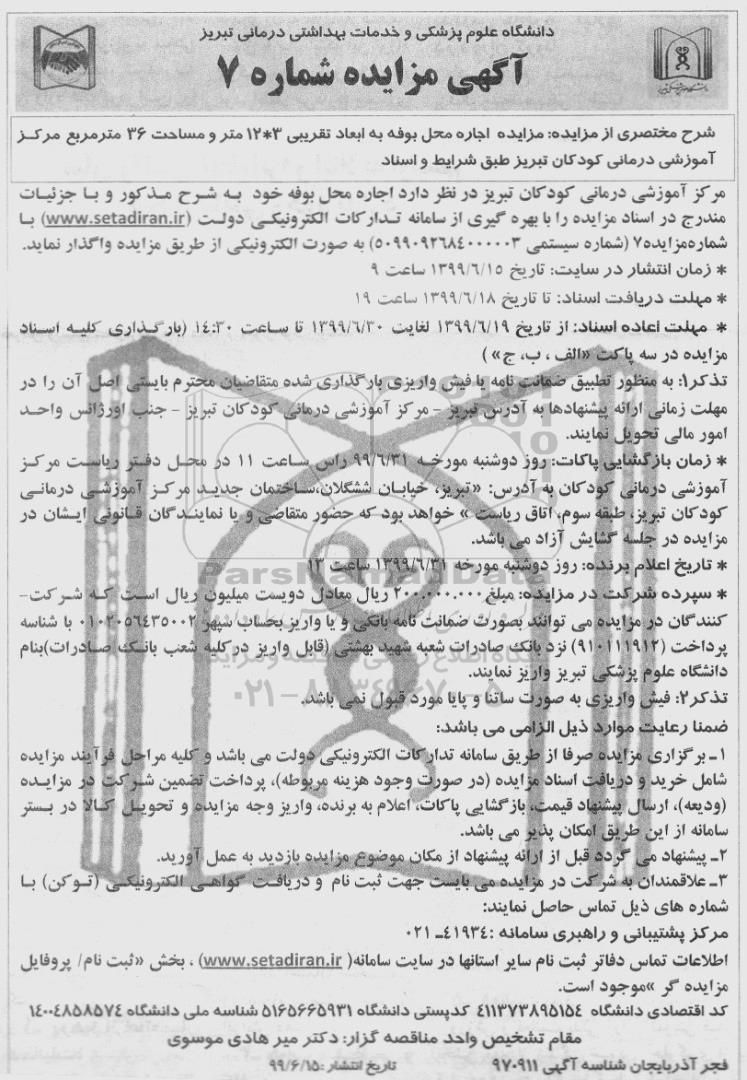 دانشگاه علوم پزشکی و خدمات بهداشتی درمانی تبریز
آگهی مزایده شماره ۷
شرح مختصری از مزایده: مزایده اجاره محل بوفه به ابعاد تقریبی ۳*۱۲ متر و مساحت ۳۶ مترمربع مرکز
آموزشی درمانی کودکان تبریز طبق شرایط و اسناد
مرکز آموزشی درمانی کودکان تبریز در نظر دارد اجاره محل بوفه خود به شرح مذکور و با جزئیات
مندرج در اسناد مزایده را با بهره گیری از سامانه تدارکات الکترونیکی دولت (www.setadiran.ir) با
شماره‌مزایده۷ (شماره سیستمی ۵۰۹۹۰۹۲۶۸۴۰۰۰۰۰۳) به صورت الکترونیکی از طریق مزایده واگذار نماید.
* زمان انتشار در سایت: تاریخ ۱۳۹۹/۶/۱۵ ساعت ۹
* مهلت دریافت اسناد: تا تاریخ ۱۳۹۹/۶/۱۸ ساعت ۱۹
* مهلت اعاده اسناد: از تاریخ ۱۳۹۹/۶/۱۹ لغایت ۱۳۹۹/۶/۳۰ تا ساعت ۱۴:۳۰ (بارگذاری کلیه اسناد
مزایده در سه پاکت «الف ، ب، ج» )
تذکر۱: به منظور تطبیق ضمانت نامه یا فیش واریزی بارگذاری شده متقاضیان محترم بایستی اصل آن را در
مهلت زمانی ارائه پیشنهادها به آدرس تبریز - مرکز آموزشی درمانی کودکان تبریز - جنب اورژانس واحد
امور مالی تحویل نمایند.
* زمان بازگشایی پاکات: روز دوشنبه مورخه ۹۹/۶/۳۱ راس ساعت ۱۱ در محل دفتر ریاست مرکز
آموزشی درمانی کودکان به آدرس: «تبریز، خیابان ششگلان،ساختمان جدید مرکز آموزشی درمانی
کودکان تبریز، طبقه سوم، اتاق ریاست » خواهد بود که حضور متقاضی و یا نمایندگان قانونی ایشان در
مزایده در جلسه گشایش آزاد می باشد.
* تاریخ اعلام برنده: روز دوشنبه مورخه ۱۳۹۹/۶/۳۱ ساعت ۱۳
* سپرده شرکت در مزایده: مبلغ ۲۰۰.۰۰۰.۰۰۰ ریال معادل دویست میلیون ریال است که شرکت-
کنندگان در مزایده می توانند بصورت ضمانت نامه بانکی و یا واریز بحساب سپهر ۰۱۰۲۰۵۶۴۳۵۰۰۲ با شناسه
پرداخت (۹۱۰۱۱۱۹۱۲) نزد بانک صادرات شعبه شهید بهشتی (قابل واریز در کلیه شعب بانک صادرات)بنام
دانشگاه علوم پزشکی تبریز واریز نمایند.
تذکر۲: فیش واریزی به صورت ساتنا و پایا مورد قبول نمی باشد.
ضمنا رعایت موارد ذیل الزامی می باشد:
۱ـ برگزاری مزایده صرفا از طریق سامانه تدارکات الکترونیکی دولت می باشد و کلیه مراحل فرآیند مزایده
شامل خرید و دریافت اسناد مزایده (در صورت وجود هزینه مربوطه)، پرداخت تضمین شرکت در مزایده
(ودیعه)، ارسال پیشنهاد قیمت، بازگشایی پاکات، اعلام به برنده، واریز وجه مزایده و تحویل کالا در بستر
سامانه از این طریق امکان پذیر می باشد.
۲ـ پیشنهاد می گردد قبل از ارائه پیشنهاد از مکان موضوع مزایده بازدید به عمل آورید.
۳ـ علاقمندان به شرکت در مزایده می بایست جهت ثبت نام و دریافت گواهی الکترونیکی (توکن) با
شماره های ذیل تماس حاصل نمایند:
مرکز پشتیبانی و راهبری سامانه :۴۱۹۳۴ـ ۰۲۱
اطلاعات تماس دفاتر ثبت نام سایر استانها در سایت سامانه( www.setadiran.ir) ، بخش «ثبت نام/ پروفایل
مزایده گر »موجود است.
کد اقتصادی دانشگاه ۴۱۱۳۷۳۸۹۵۱۵۴ کدپستی دانشگاه ۵۱۶۵۶۶۵۹۳۱ شناسه ملی دانشگاه ۱۴۰۰۴۸۵۸۵۷۴
مقام تشخیص واحد مناقصه گزار: دکتر میر هادی موسوی
فجر آذربایجان شناسه آگهی ۹۷۰۹۱۱ تاریخ انتشار :۹۹/۶/۱۵
ParsNamadData